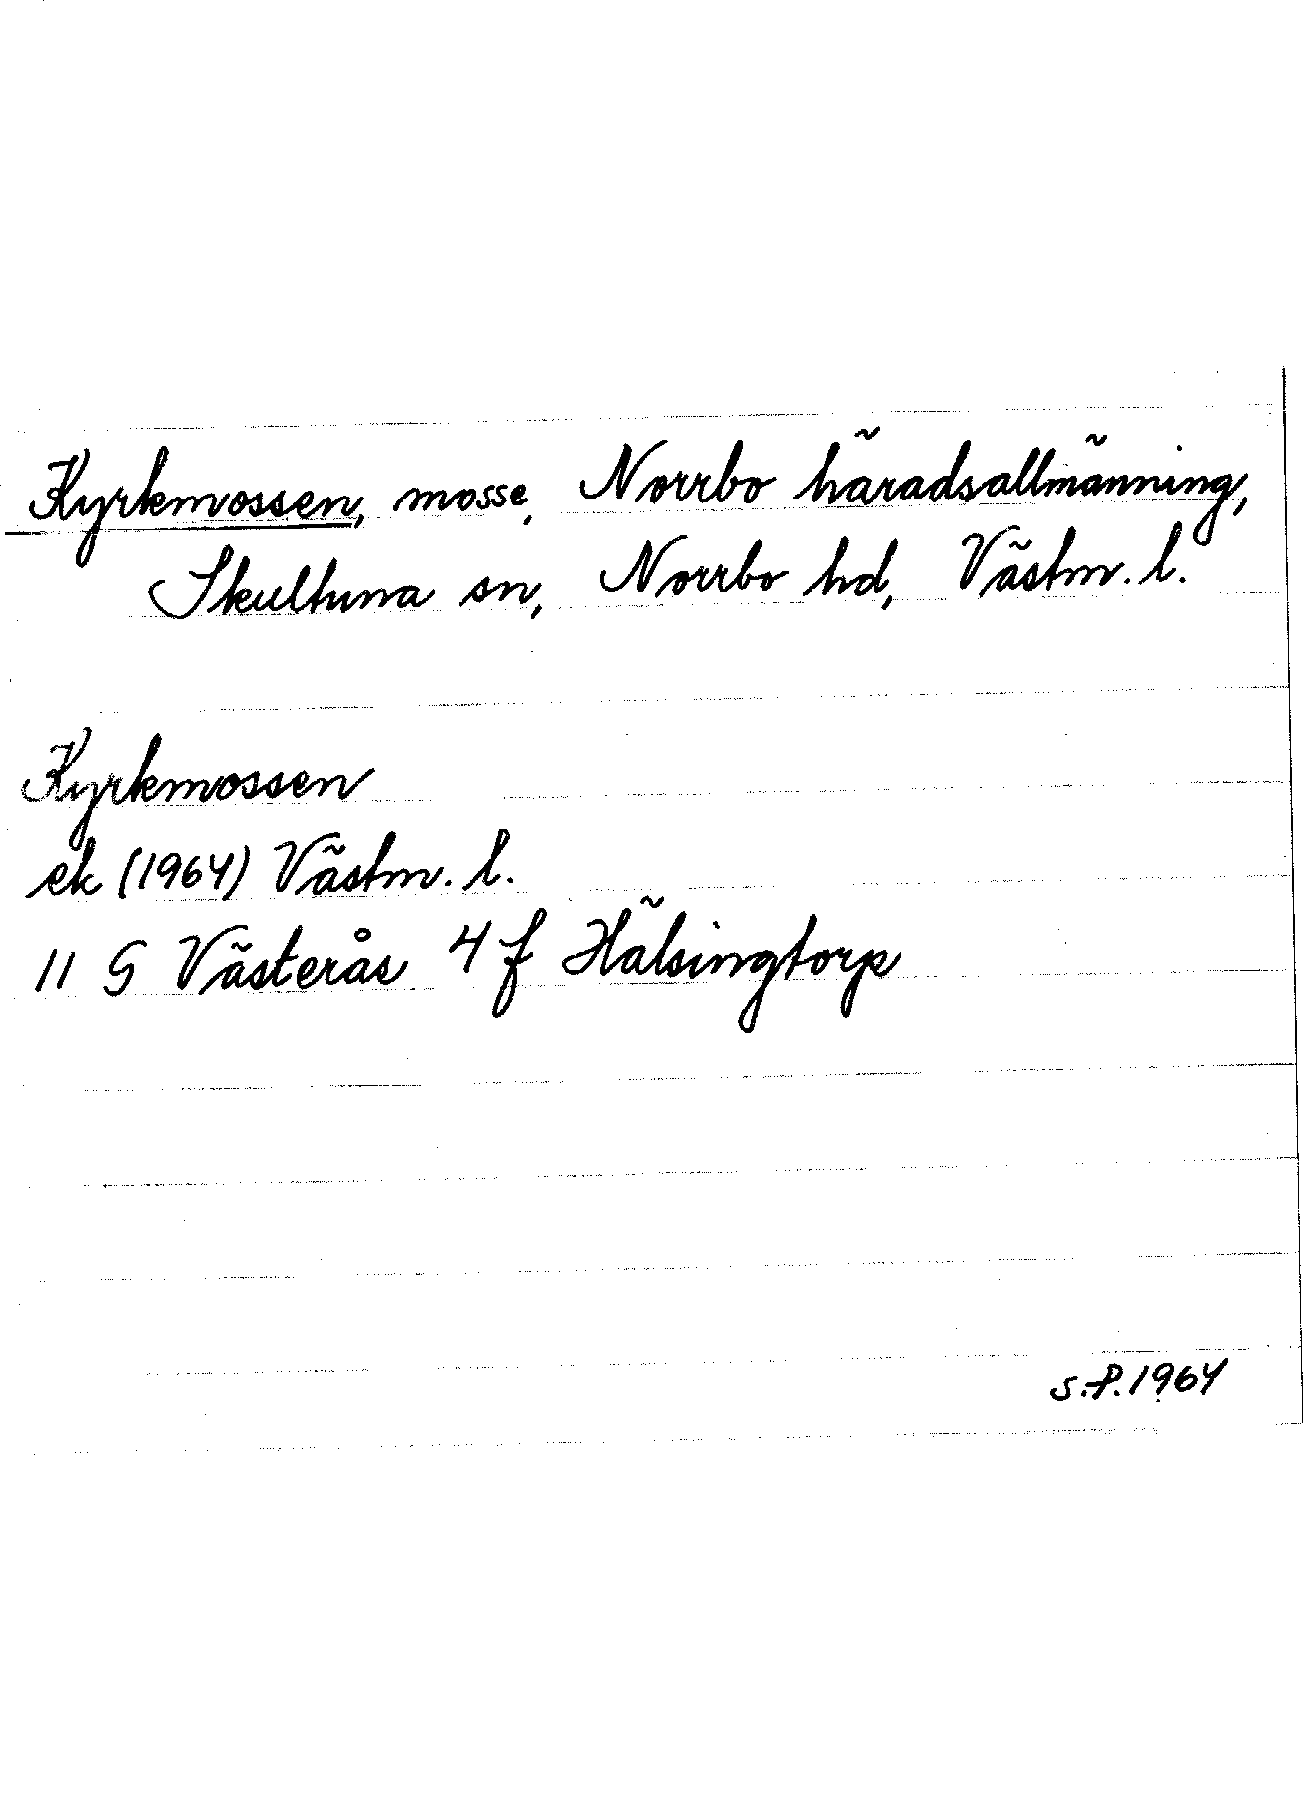 Kyrkmossen, mosse, Norrbo häradsallmänning,
Skultuna sn, Norrbo hd, Västm. l.
Kyrkmossen
ek (1964) Västm. l.
11 G Västerås 4 f Hälsingtorp
S.P. 1964